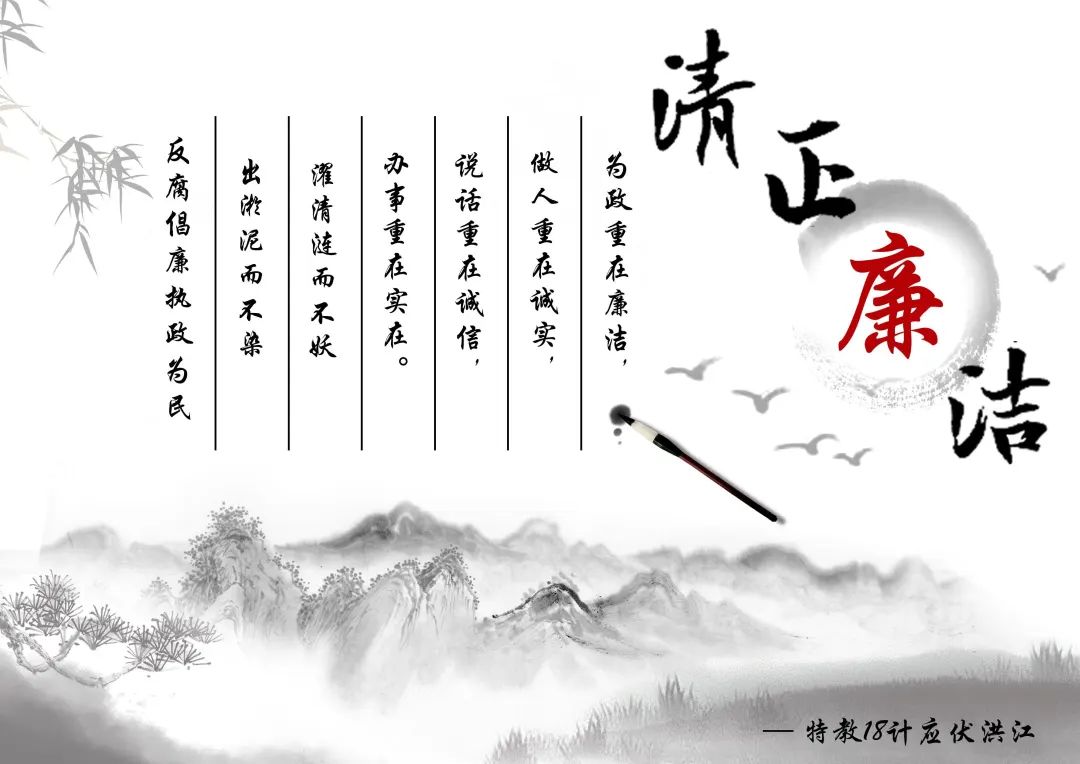 清正廉洁
为政重在廉洁，
做人重在诚实，
说话重在诚信，
办事重在实在。
濯清涟而不妖
出淤泥而不染
反腐倡廉执政为民
— 特教18计应伏洪江